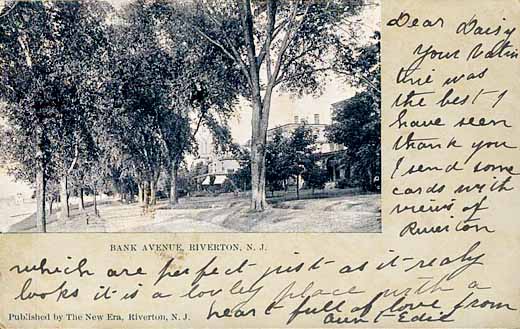 Dear Daisy
Your Valen
tine was
the best I
have seen
thank you
I send some
cards with
views of
Riverton
BANK AVENUE, RIVERTON, N. J.
which are perfect just as it realy
looks it is a lovely place with a
heart full of love from
Aunt Edie
Published by The New Era, Riverton, N. J.